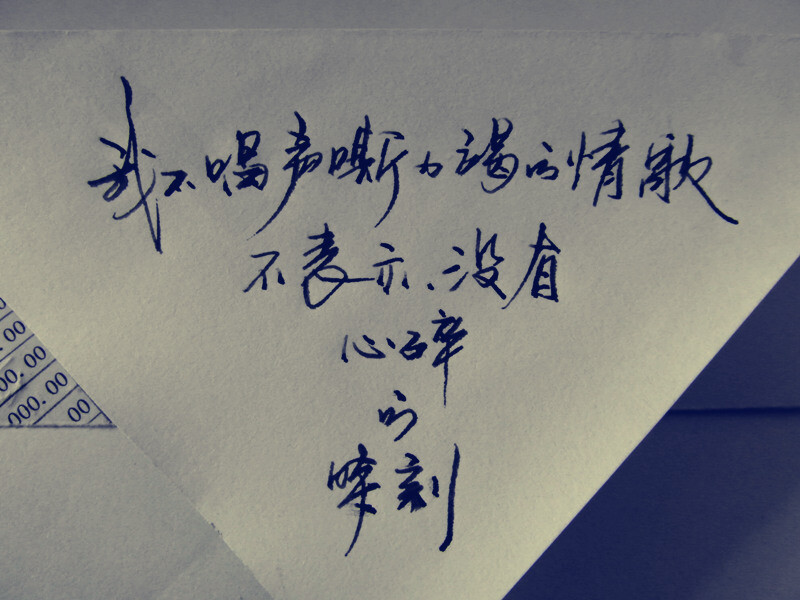 我不唱声嘶力竭的情歌
不表示、没有
心碎
的
時刻
.00
00.00
000.00
00